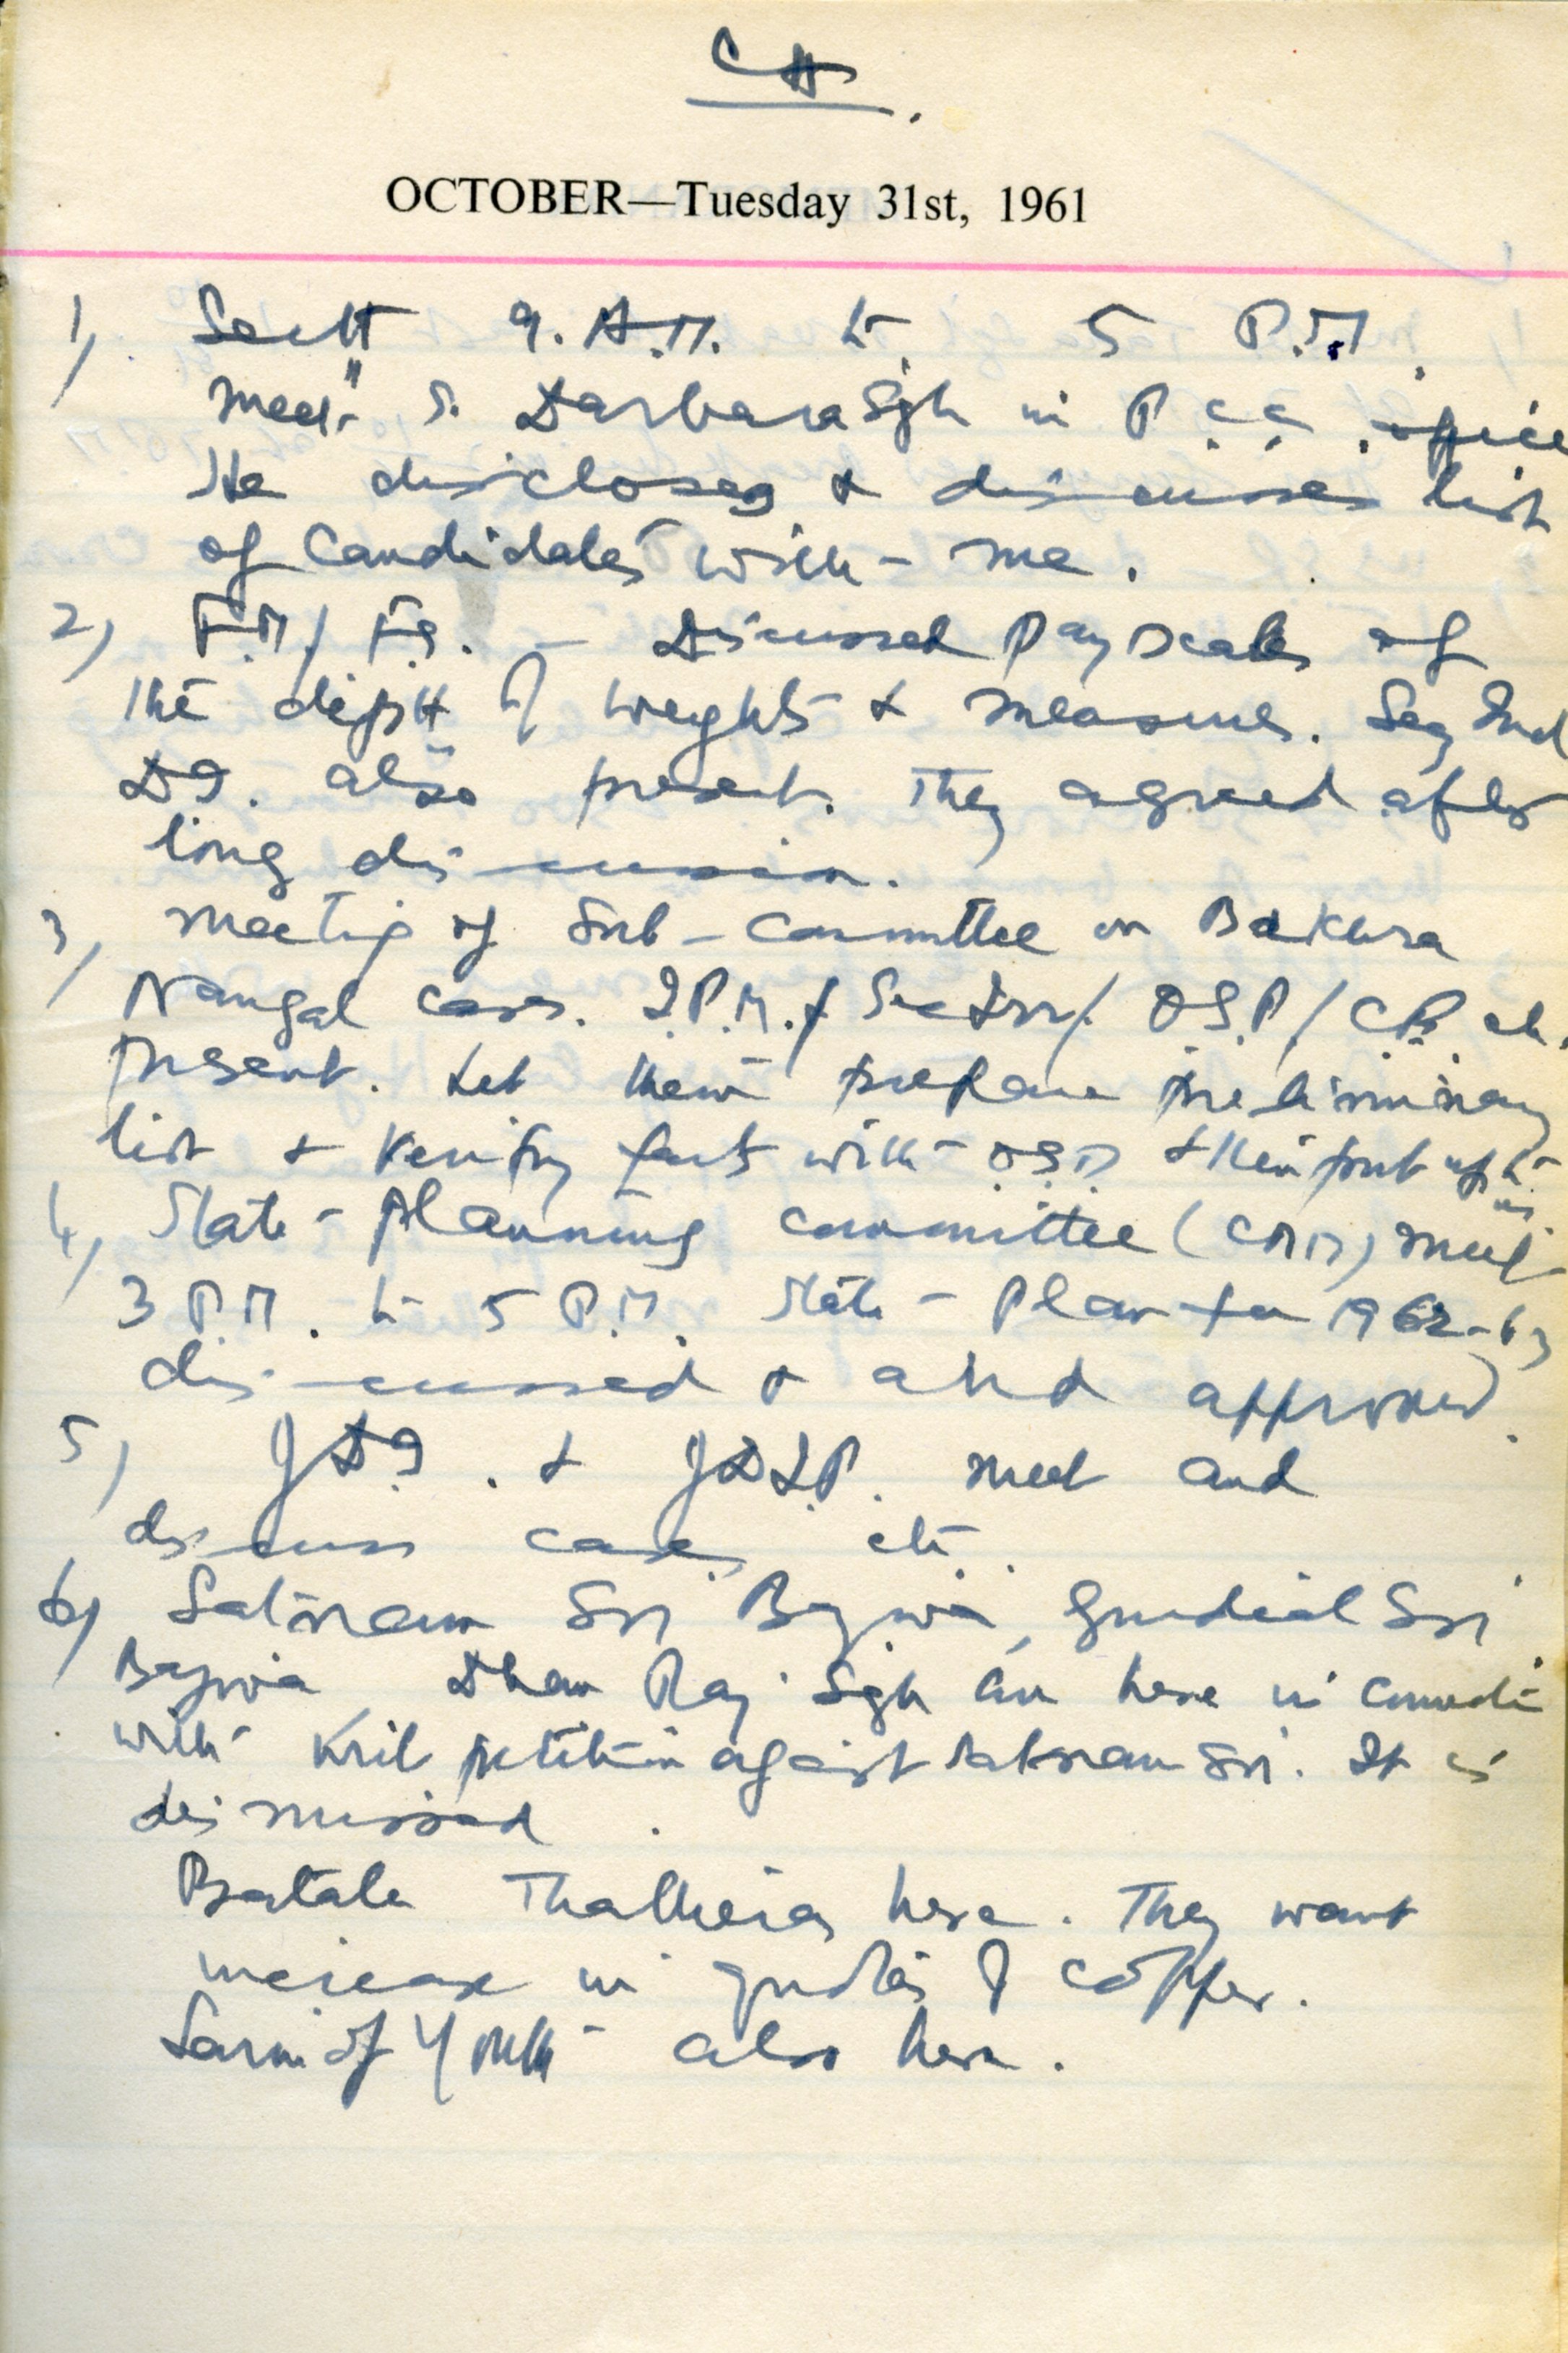 CH.
OCTOBER—Tuesday 31st, 1961
1) Sectt 9. A.M. to 5 P.M.
Meet S. Darbara Sgh in P.C.C. office
He discloses & discusses list
of Candidates with me.
2) F.M/ F.S. - Discussed Pay Scales of
the deptt of weights & measures. Secy Ind
D I. also present. They agreed after
long discussion.
3) Meeting of Sub-Committee on Bakhra
Nangal cases. I.P.M./ Sec Irr/ O.S.P/ etc.
present. Let them prepare preliminary
list & verify facts with & then put up to
us.
4) State - Planning Committee ( ) meet
3 P.M. to 5 P.M. State - Plan for 1962-63
discussed & approved.
5) J D I. & J D I.P. meet and
discuss cases etc.
6) Satnam Sri Bajwa, Gurdial Sri
Bajwa Dhan Raj Sgh are here in
with writ petition against Satnam Sri. It is
dismissed.
Batala here. They want
increase in quotas of copper.
of Youth also here.